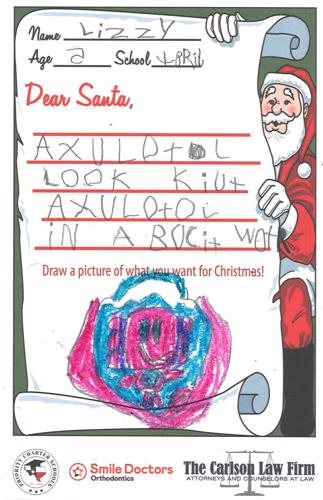 Name Lizzy
Age a School tpril
Dear Santa,
AXULOtOL
LOOK KiUt
AXULOtOL
iN A BUCit Wot
Draw a picture of what you want for Christmas!
PRIORITY CHARTER SCHOOLS
Smile Doctors
Orthodontics
The Carlson Law Firm
ATTORNEYS AND COUNSELORS AT LAW